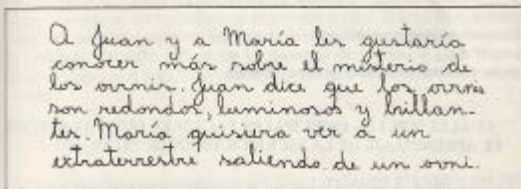 A Juan y a María les gustaría
conocer más sobre el misterio de
los ovnis. Juan dice que los ovnis
son redondos, luminosos y brillan-
tes. María quisiera ver a un
extraterrestre saliendo de un ovni.